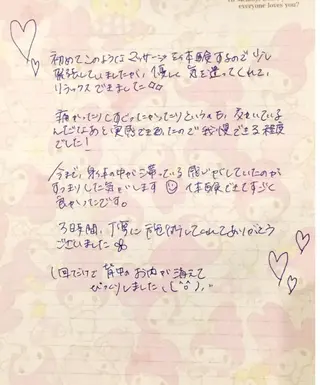 everyone loves you?
初めてこのようなマッサージを体験するので少し
緊張していましたが、優しく気を遣ってくれて、
リラックスできました
痛かったりくすぐったかったりというのも、変わっている
んだなあと実感できたので我慢できる程度
でした!
今まで、身体の中が滞っている感じがしていたのが
すっきりした気がします 体験できてすごく
良かったです。
3時間、丁寧に施術してくれてありがとう
ございました
1回だけで背中のお肉が消えて
びっくりしました(^o^)